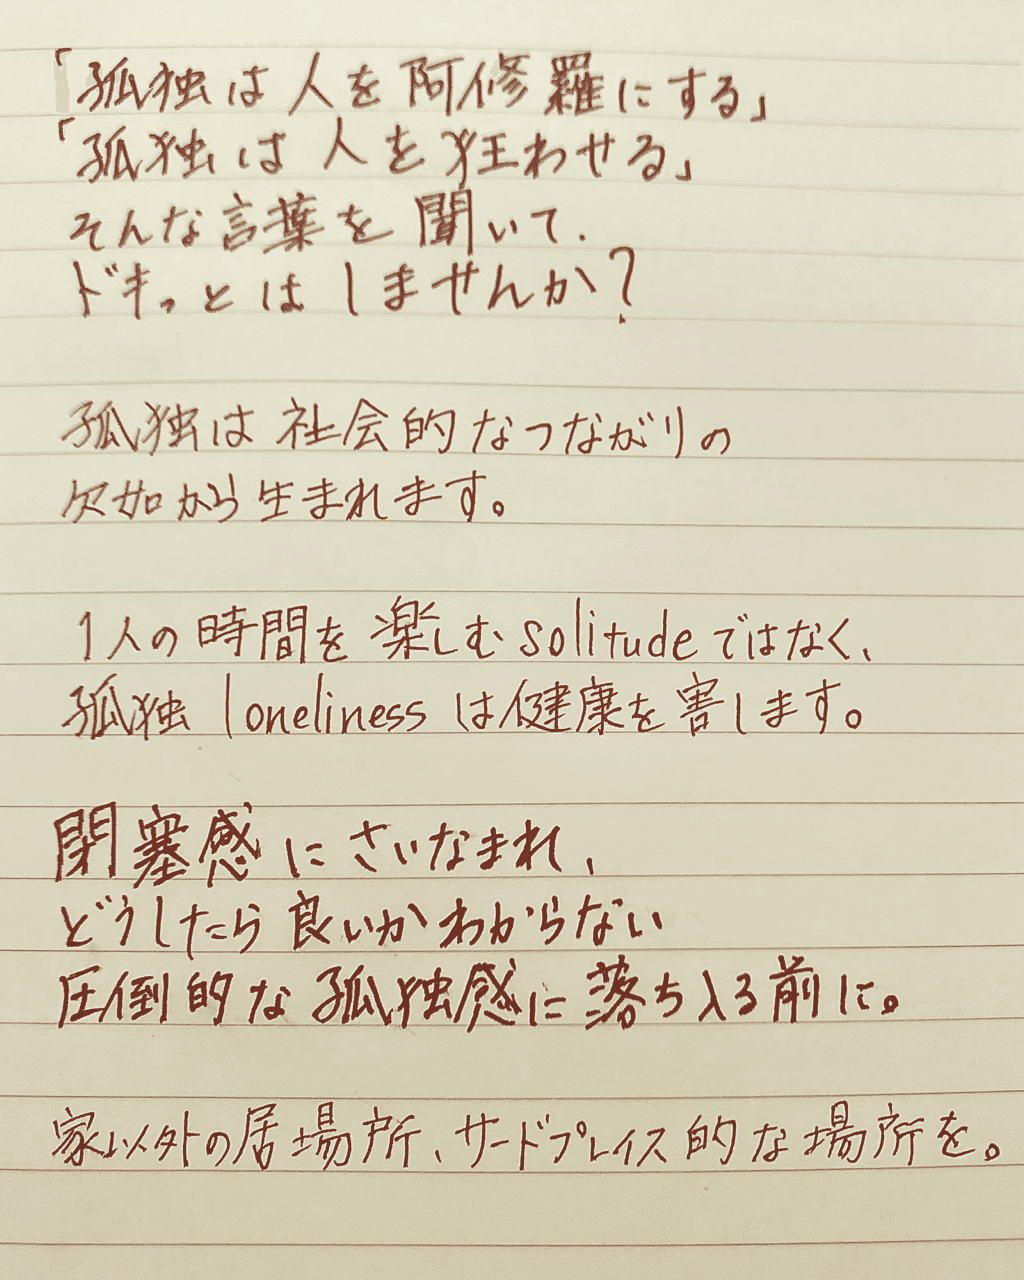 「孤独は人を阿修羅にする」
「孤独は人を狂わせる」
そんな言葉を聞いて、
ドキっとはしませんか?
孤独は社会的なつながりの
欠如から生まれます。
1人の時間を楽しむsolitudeではなく、
孤独 lonelinessは健康を害します。
閉塞感にさいなまれ、
どうしたら良いかわからない
圧倒的な孤独感に落ち入る前に。
家以外の居場所、サードプレイス的な場所を。